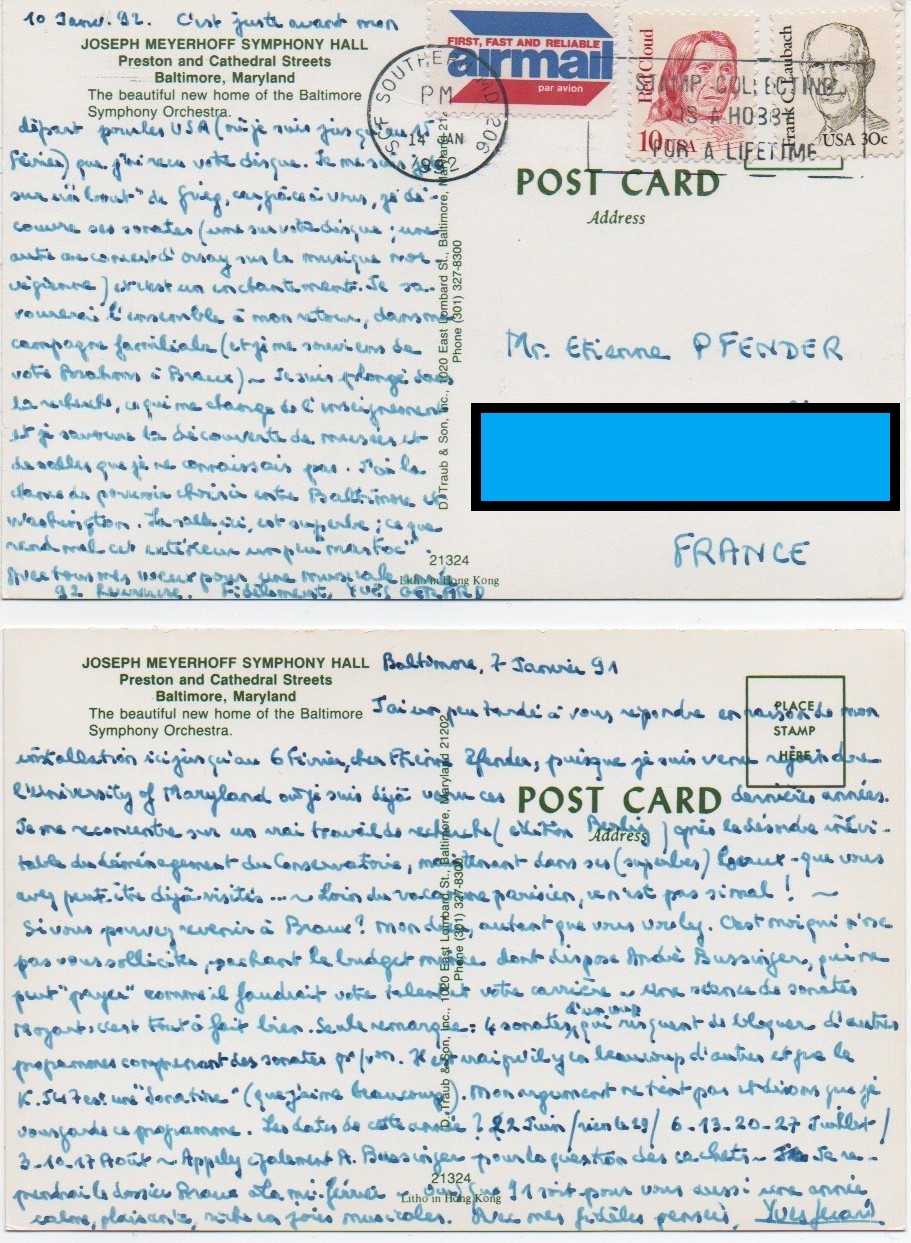 10 Janv. 92. C'est juste avant mon
JOSEPH MEYERHOFF SYMPHONY HALL
Preston and Cathedral Streets
Baltimore, Maryland
The beautiful new home of the Baltimore
Symphony Orchestra.
départ pour les USA (où je suis jusqu'au 15
Février) que j'ai reçu votre disque. Je me suis
sur "un bout" de Grieg, car, grâce à vous, je dé-
couvre ses sonates (une sur votre disque; une
autre au concert d'Orsay sur la musique nor-
végienne) et c'est un enchantement. Je sa-
vourerai l'ensemble à mon retour, dans ma
campagne familiale (et je me souviens de
votre Brahms à Braux) ~ Je suis plongé dans
la recherche, ce qui me change de l'enseignement
et je savoure la découverte de musées et
de salles que je ne connaissais pas. J'ai la
chance de pouvoir choisir entre Baltimore et
Washington. La salle, ici, est superbe; ce que
rend mal cet extérieur un peu "mastoc".
Avec tous mes vœux pour une musicale
92 heureuse. Fidèlement, YVES GERARD
FIRST, FAST AND RELIABLE
airmail
par avion
SCF SOUTHERN MD 206
PM
14 JAN
1992
STAMP COLLECTING
IS A HOBBY
FOR A LIFETIME
Red Cloud
10c USA
Frank C. Laubach
USA 30c
POST CARD
Address
D. Traub & Son, Inc., 1020 East Lombard St., Baltimore, Maryland 21
Phone (301) 327-8300
Mr. Etienne PFENDER
FRANCE
21324
Litho in Hong Kong
JOSEPH MEYERHOFF SYMPHONY HALL
Preston and Cathedral Streets
Baltimore, Maryland
The beautiful new home of the Baltimore
Symphony Orchestra.
PLACE
STAMP
HERE
POST CARD
Address
D. Traub & Son, Inc., 1020 East Lombard St., Baltimore, Maryland 21202
Phone (301) 327-8300
21324
Litho in Hong Kong
Baltimore, 7 Janvier 91
J'ai un peu tardé à vous répondre en raison de mon
installation ici jusqu'au 6 Février, cher Etienne Pfender, puisque je suis venu rejoindre
l'University of Maryland où je suis déjà venu ces dernières années.
Je me reconcentre sur un vrai travail de recherche (édition Berlioz) après le désordre inévi-
table du déménagement du Conservatoire, maintenant dans ses (superbes) locaux - que vous
avez peut-être déjà visités ... ~ Loin du vacarme parisien, ce n'est pas si mal ! ~
Si vous pouvez revenir à Braux? Mon dieu, autant que vous voulez. C'est moi qui n'ose
pas vous solliciter, sachant le budget mince dont dispose André Bussinger, qui ne
peut "payer" comme il faudrait votre talent et votre carrière ~ Une séance de sonates
Mozart: c'est tout à fait bien. Seule remarque: 4 sonates d'un coup, qui risquent de bloquer d'autres
programmes comprenant des sonates po/von. Il est vrai qu'il y en a beaucoup d'autres et que la
K. 547 est une "sonatine" (que j'aime beaucoup). Mon argument ne tient pas et disons que je
vous garde ce programme. Les dates de cette année? 22 Juin / rien le 29 / 6-13-20-27 Juillet /
3-10-17 Août ~ Appelez également A. Bussinger pour la question des cachets ~ Je re-
prendrai le dossier Braux à la mi-février ~ Que 91 soit pour vous aussi une année
calme, plaisante, riche en joies musicales. Avec mes fidèles pensées, Yves Gérard